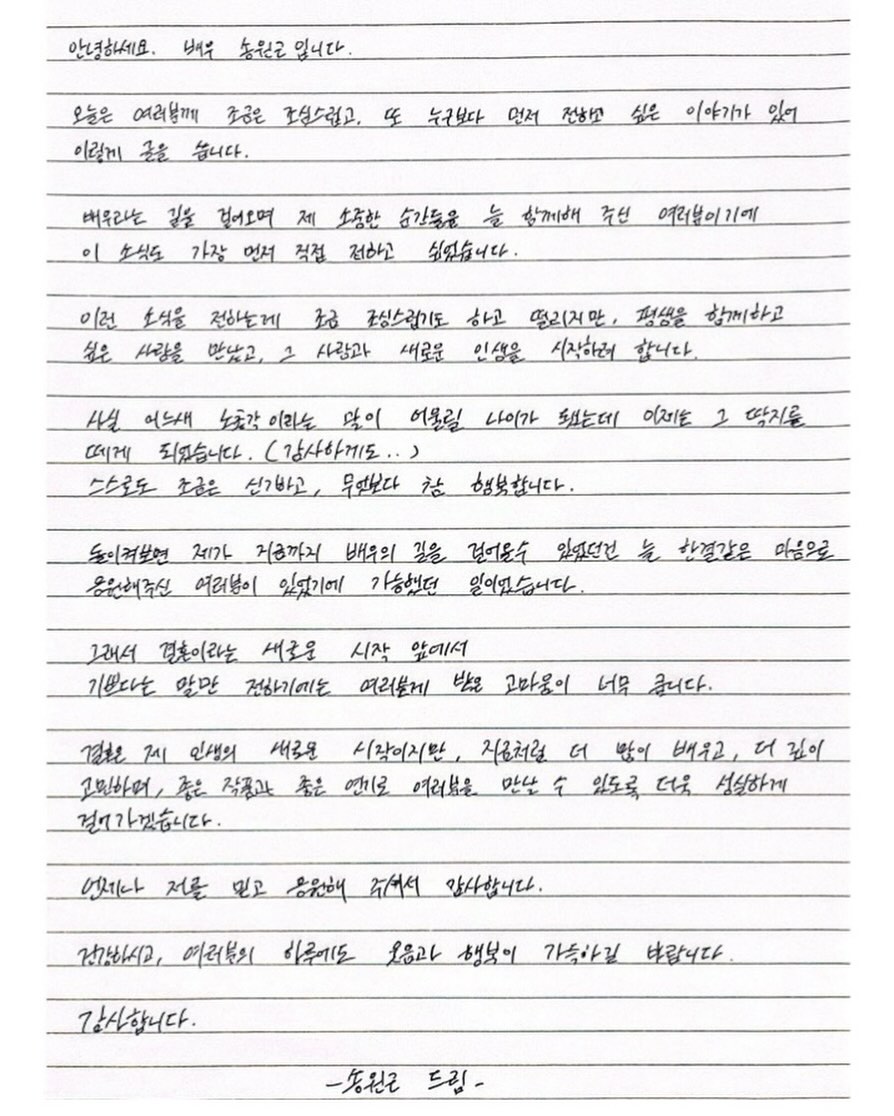 안녕하세요. 배우 송원근입니다.
오늘은 여러분께 조금은 조심스럽고, 또 누구보다 먼저 전하고 싶은 이야기가 있어
이렇게 글을 씁니다.
배우라는 길을 걸어오며 제 소중한 순간들을 늘 함께해 주신 여러분이기에
이 소식도 가장 먼저 직접 전하고 싶었습니다.
이런 소식을 전하는게 조금 조심스럽기도 하고 떨리지만, 평생을 함께하고
싶은 사람을 만났고, 그 사람과 새로운 인생을 시작하려 합니다.
사실 어느새 노총각이라는 말이 어울릴 나이가 됐는데 이제는 그 딱지를
떼게 되었습니다. (감사하게도..)
스스로도 조금은 신기하고, 무엇보다 참 행복합니다.
돌이켜보면 제가 지금까지 배우의 길을 걸어올수 있었던건 늘 한결같은 마음으로
응원해주신 여러분이 있었기에 가능했던 일이었습니다.
그래서 결혼이라는 새로운 시작 앞에서
기쁘다는 말만 전하기에는 여러분께 받은 고마움이 너무 큽니다.
결혼은 제 인생의 새로운 시작이지만, 지금처럼 더 많이 배우고, 더 깊이
고민하며, 좋은 작품과 좋은 연기로 여러분을 만날 수 있도록 더욱 성실하게
걸어가겠습니다.
언제나 저를 믿고 응원해 주셔서 감사합니다.
건강하시고, 여러분의 하루에도 웃음과 행복이 가득하길 바랍니다.
감사합니다.
-송원근 드림-